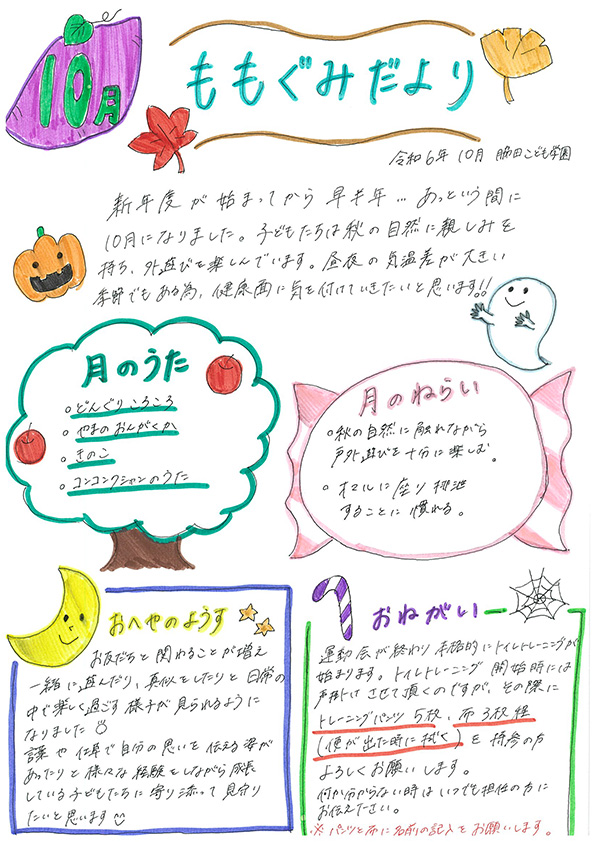 10月
ももぐみだより
令和6年 10月 脇田こども学園
新年度が始まってから早半年…あっという間に
10月になりました。子どもたちは秋の自然に親しみを
持ち、外遊びを楽しんでいます。昼夜の気温差が大きい
季節でもある為、健康面に気を付けていきたいと思います!!
月のうた
○どんぐりころころ
○やまのおんがくか
○きのこ
○コンコンクシャンのうた
月のねらい
○秋の自然に触れながら
戸外遊びを十分に楽しむ。
○オマルに座り排泄
することに慣れる。
おへやのようす
お友だちと関わることが増え
一緒に遊んだり、真似をしたりと日常の
中で楽しく過ごす様子が見られるように
なりました
言葉や仕草で自分の思いを伝える姿が
あったりと様々な経験をしながら成長
している子どもたちに寄り添って見守り
たいと思います
おねがい
運動会が終わり本格的にトイレトレーニングが
始まります。トイレトレーニング開始時には
声掛けさせて頂くのですが、その際に
トレーニングパンツ5枚、布3枚程
(便が出た時に拭く)を持参の方
よろしくお願いします。
何か分からない時はいつでも担任の方に
お伝え下さい。
※パンツと布に名前の記入をお願いします。